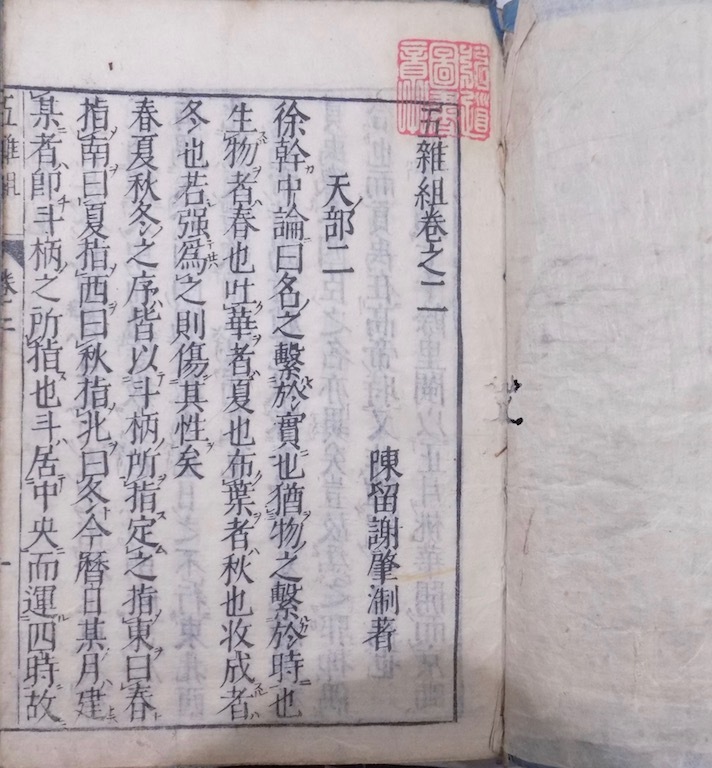 五雜組卷之二
陳留謝肇淛著
天部二
徐幹中論曰名之繫於實也猶物之繫於時也
生物者春也吐華者夏也布葉者秋也收成者
冬也若强爲之則傷其性矣
春夏秋冬之序皆以斗柄所指定之指東曰春
指南曰夏指西曰秋指北曰冬今曆日某月建
某者即斗柄之所指也斗居中央而運四時故
五雜組 卷二 一